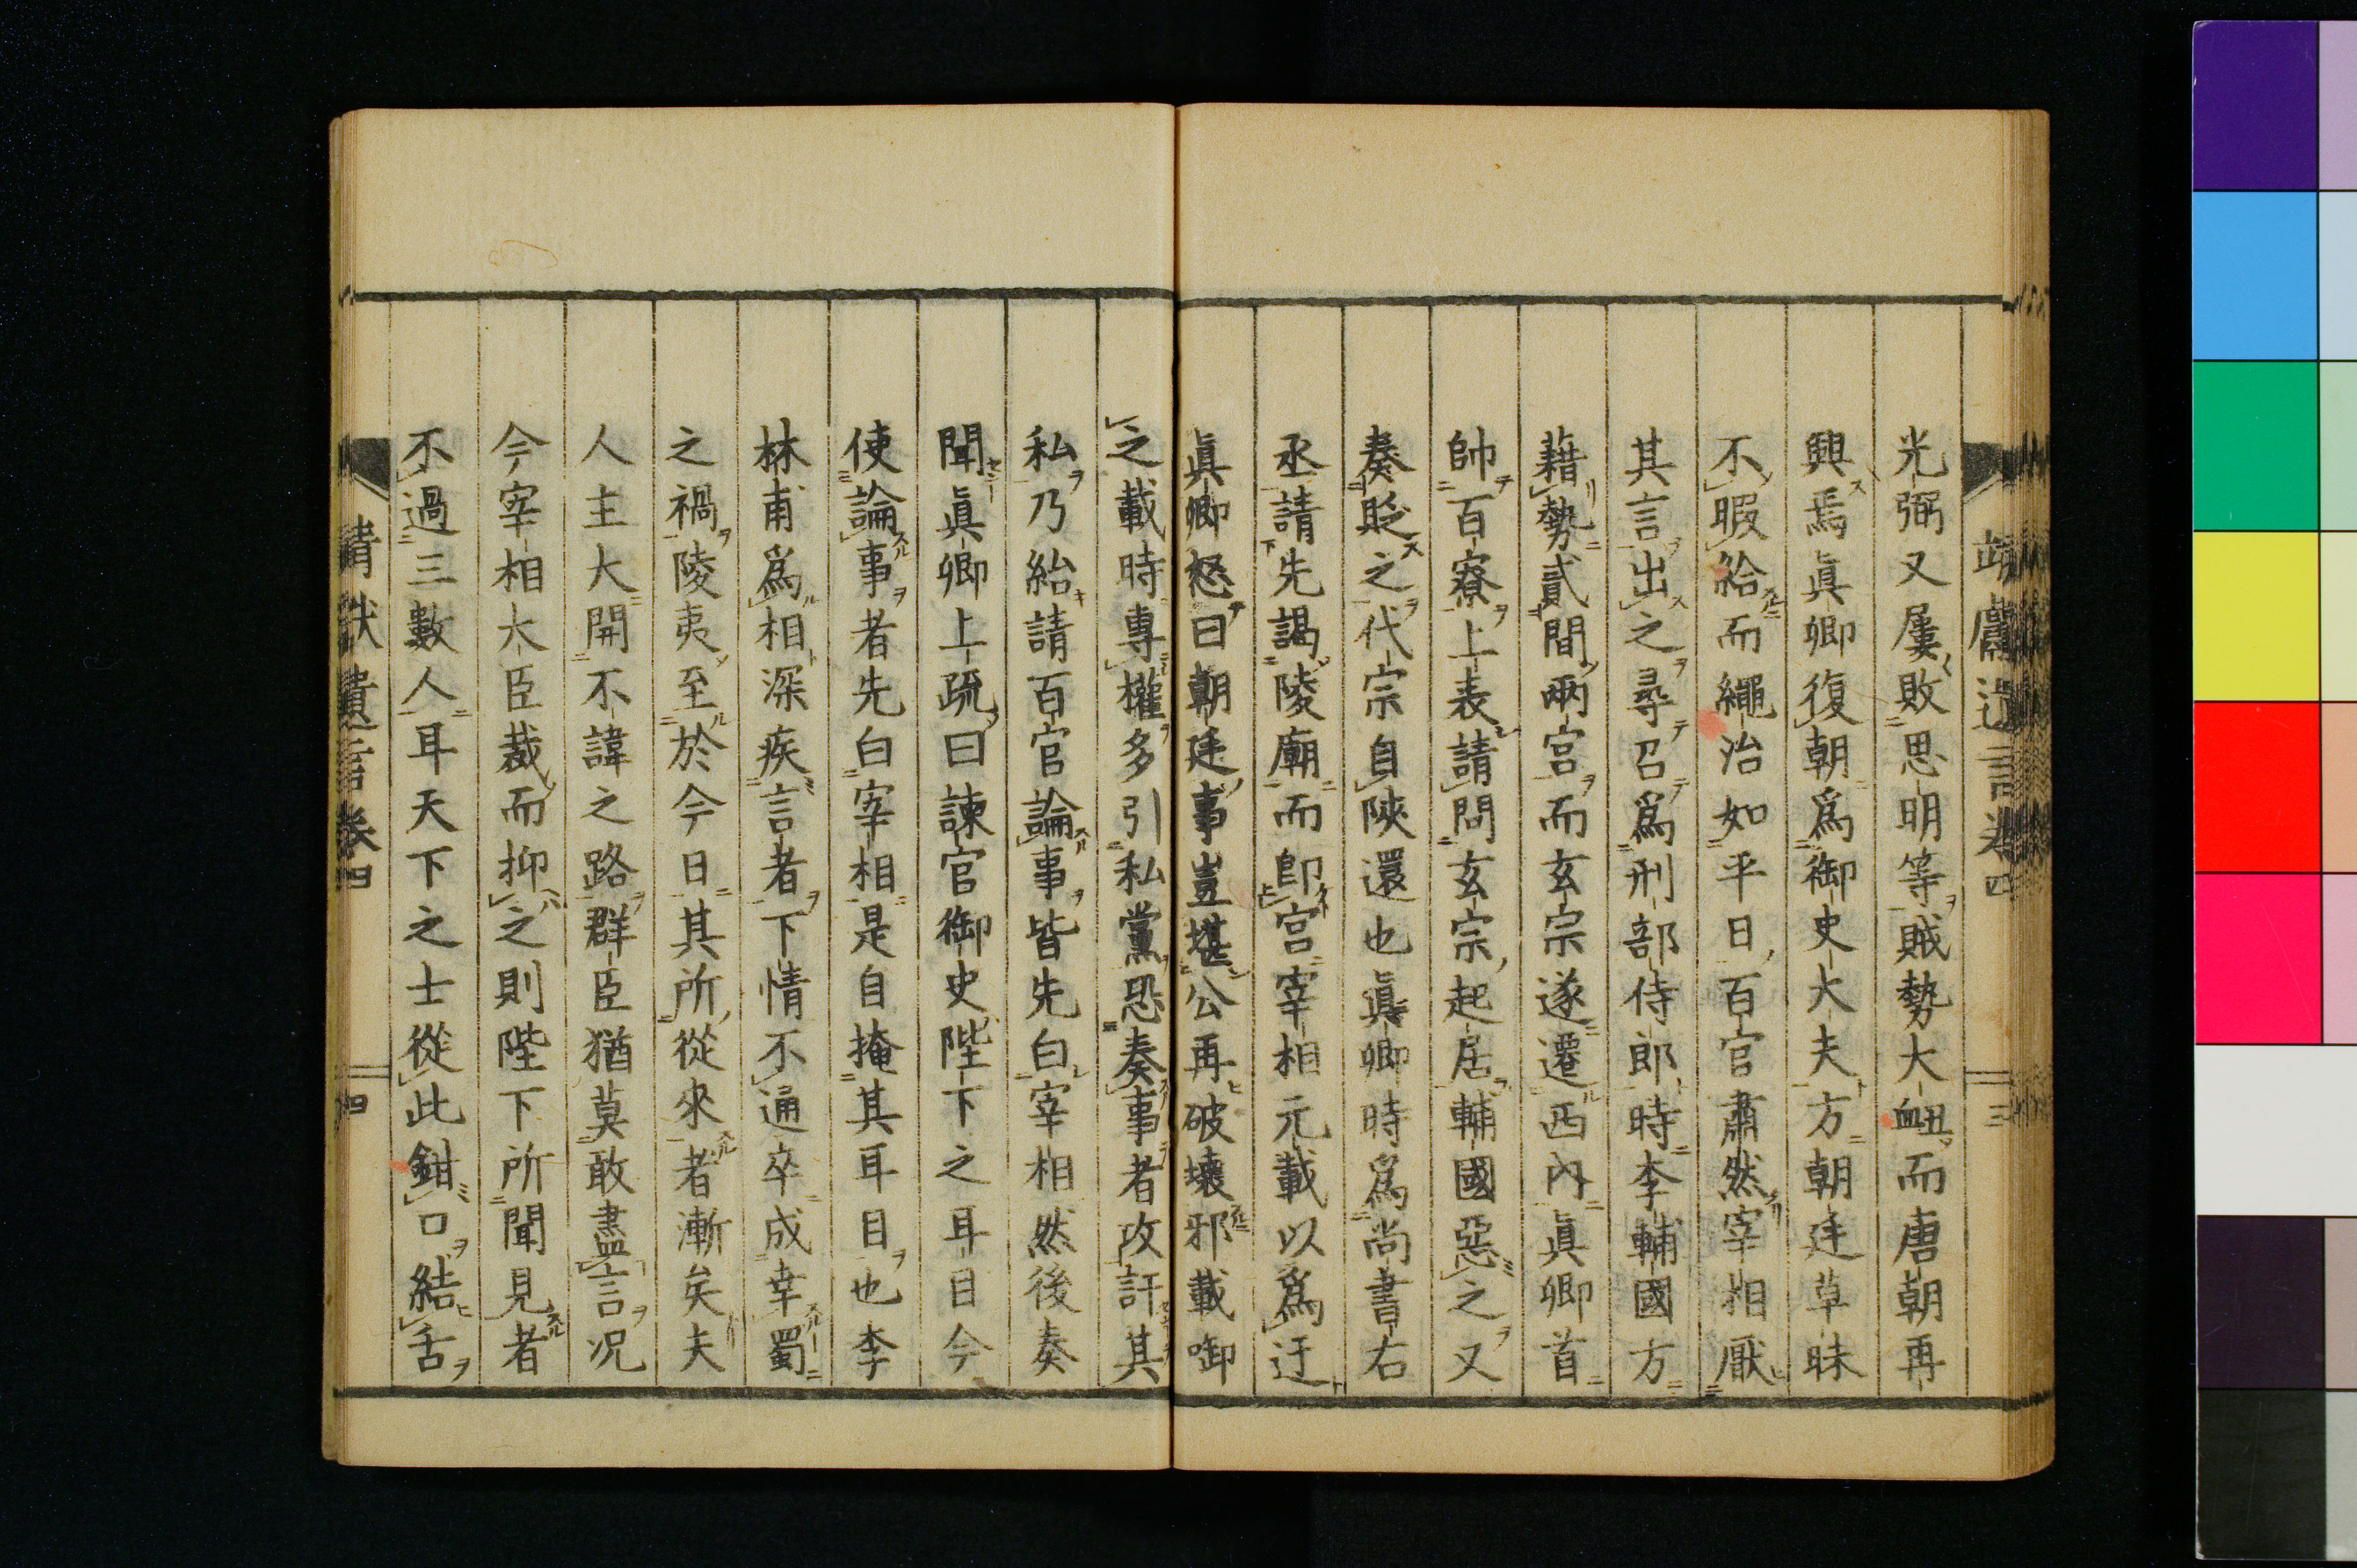 光弼又屢敗思明等賊勢大衄而唐朝再
興焉眞卿復朝爲御史大夫方朝廷草昧
不暇給而繩治如平日百官肅然宰相厭
其言出之尋召爲刑部侍郎時李輔國方
藉勢貳間兩宮而玄宗遂遷西内眞卿首
帥百寮上表請問玄宗起居輔國惡之又
奏貶之代宗自陝還也眞卿時爲尚書右
丞請先謁陵廟而卽宮宰相元載以爲迂
眞卿怒曰朝廷事豈堪公再破壞邪載啣
之載時專權多引私黨恐奏事者攻訐其
私乃紿請百官論事皆先白宰相然後奏
聞眞卿上疏曰諫官御史陛下之耳目今
使論事者先白宰相是自掩其耳目也李
林甫爲相深疾言者下情不通卒成幸蜀
之禍陵夷至於今日其所從來者漸矣夫
人主大開不諱之路群臣猶莫敢盡言况
今宰相大臣裁而抑之則陛下所聞見者
不過三數人耳天下之士從此鉗口結舌
靖獻遺言卷四
四